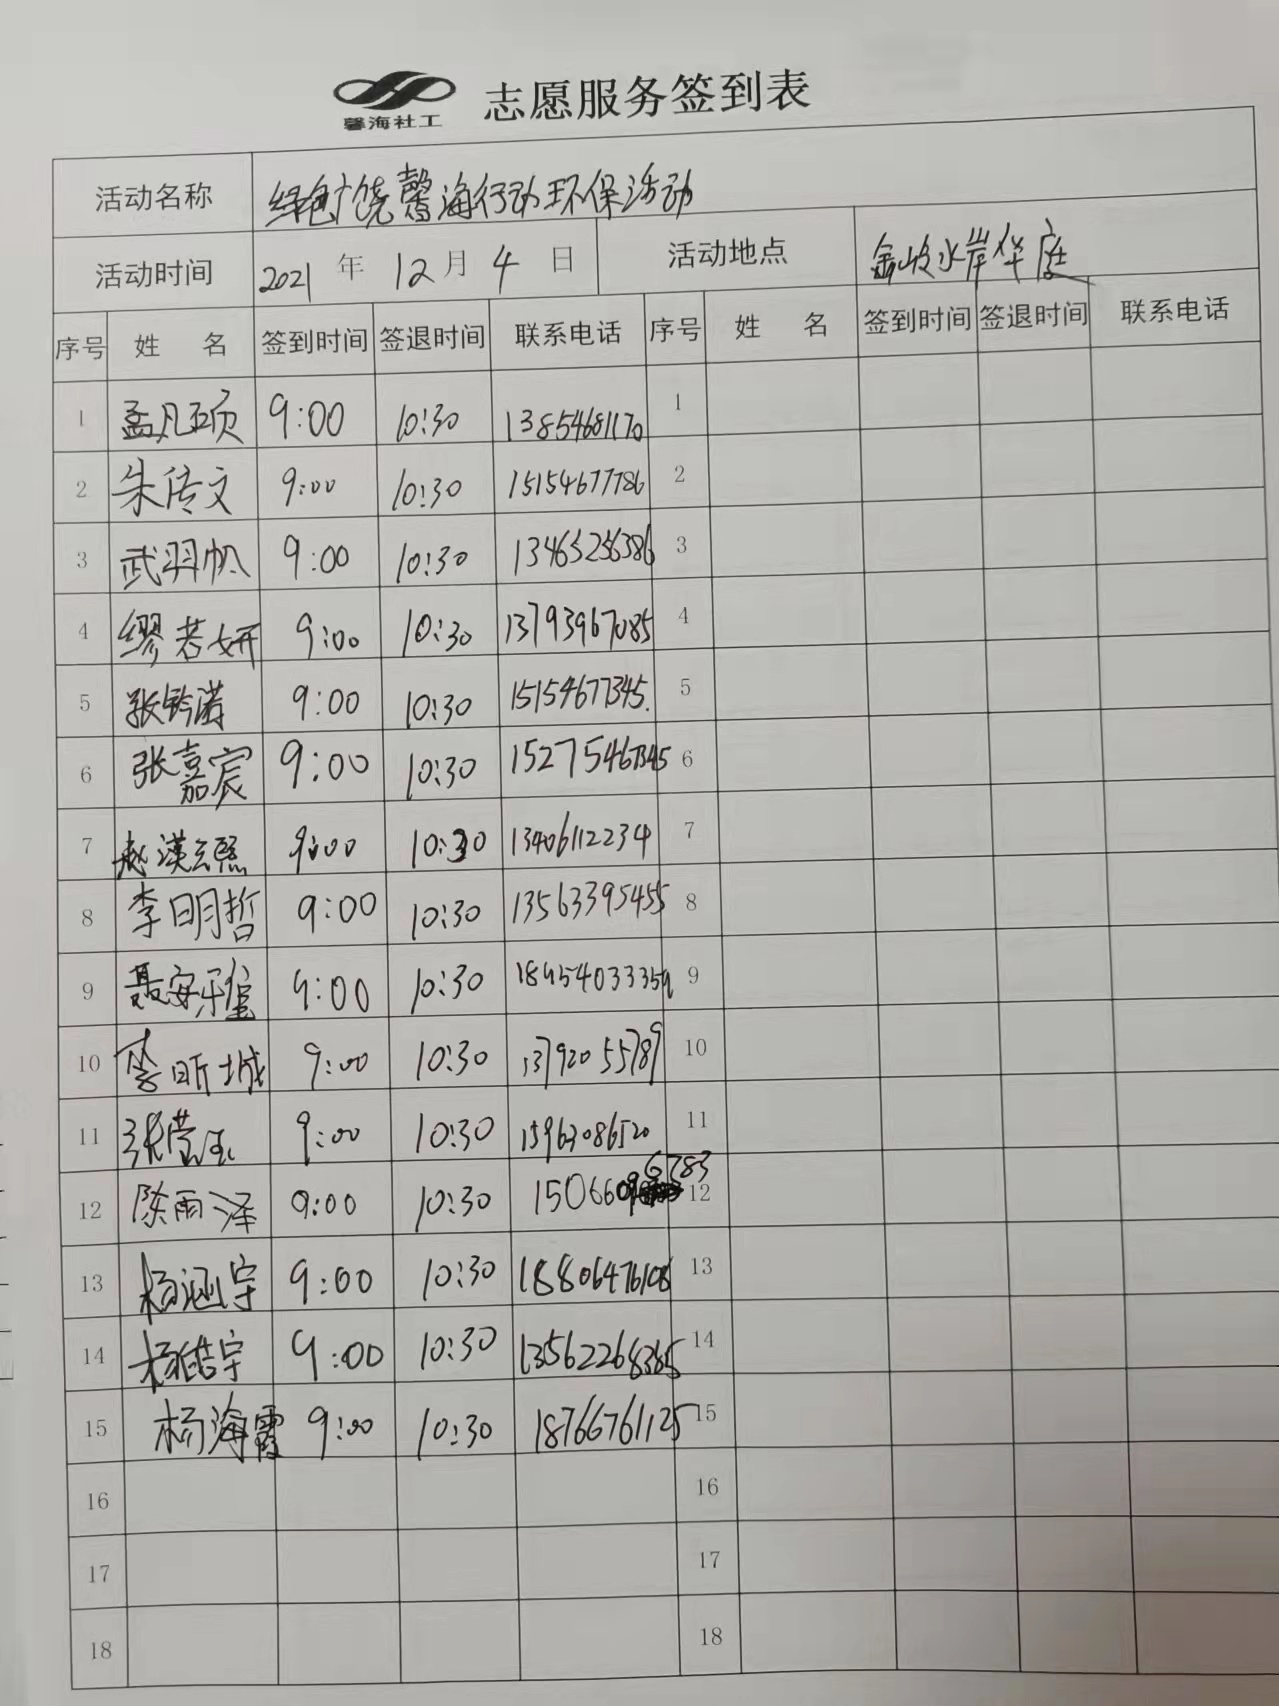 馨海社工
志愿服务签到表
活动名称 绿色广饶馨海行动环保活动
活动时间 2021 年 12 月 4 日 活动地点 金岐水岸华庭
序号 姓 名 签到时间 签退时间 联系电话 序号 姓 名 签到时间 签退时间 联系电话
1 孟凡硕 9:00 10:30 13854681170 1
2 朱传文 9:00 10:30 15154677786 2
3 武羽帆 9:00 10:30 13465256386 3
4 缪若妍 9:00 10:30 13793967085 4
5 张钤潇 9:00 10:30 15154677345. 5
6 张嘉宸 9:00 10:30 15275467345 6
7 赵漢云熙 9:00 10:30 13406112234 7
8 李明哲 9:00 10:30 13563395455 8
9 聂安雅 9:00 10:30 18954033359 9
10 李昕城 9:00 10:30 13792055789 10
11 张莹玉 9:00 10:30 15963086520 11
12 陈雨泽 9:00 10:30 15066096783 12
13 杨涵宇 9:00 10:30 18806476108 13
14 杨皓宇 9:00 10:30 13562268385 14
15 杨海霞 9:00 10:30 18766761125 15
16 16
17 17
18 18